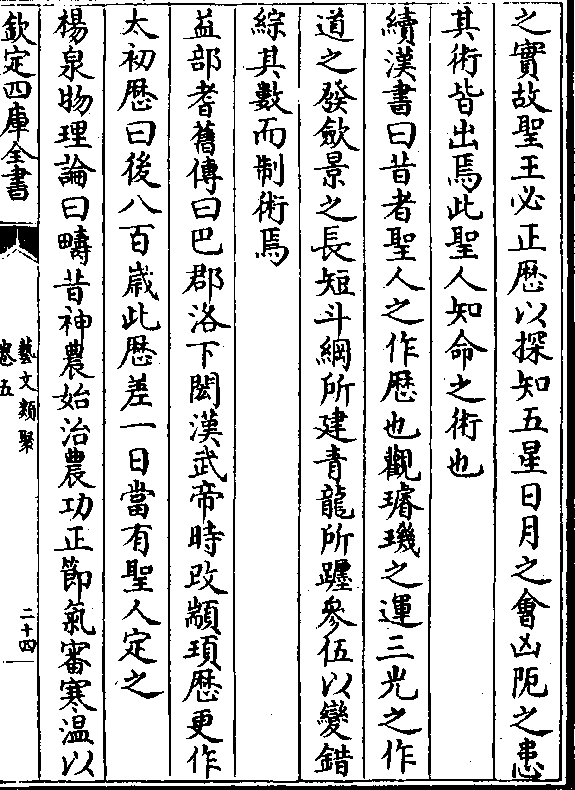 之實故聖王必正厯以探知五星日月之會凶阨之患
其術皆出焉此聖人知命之術也
續漢書曰昔者聖人之作厯也觀璿璣之運三光之作
道之發斂景之長短斗綱所建青龍所躔參伍以變錯
綜其數而制術焉
益部耆舊傳曰巴郡洛下閎漢武帝時改顓頊厯更作
太初厯曰後八百歳此厯差一日當有聖人定之
楊泉物理論曰疇昔神農始治農功正節氣審寒温以
欽定四庫全書
藝文類聚
卷五
二十四